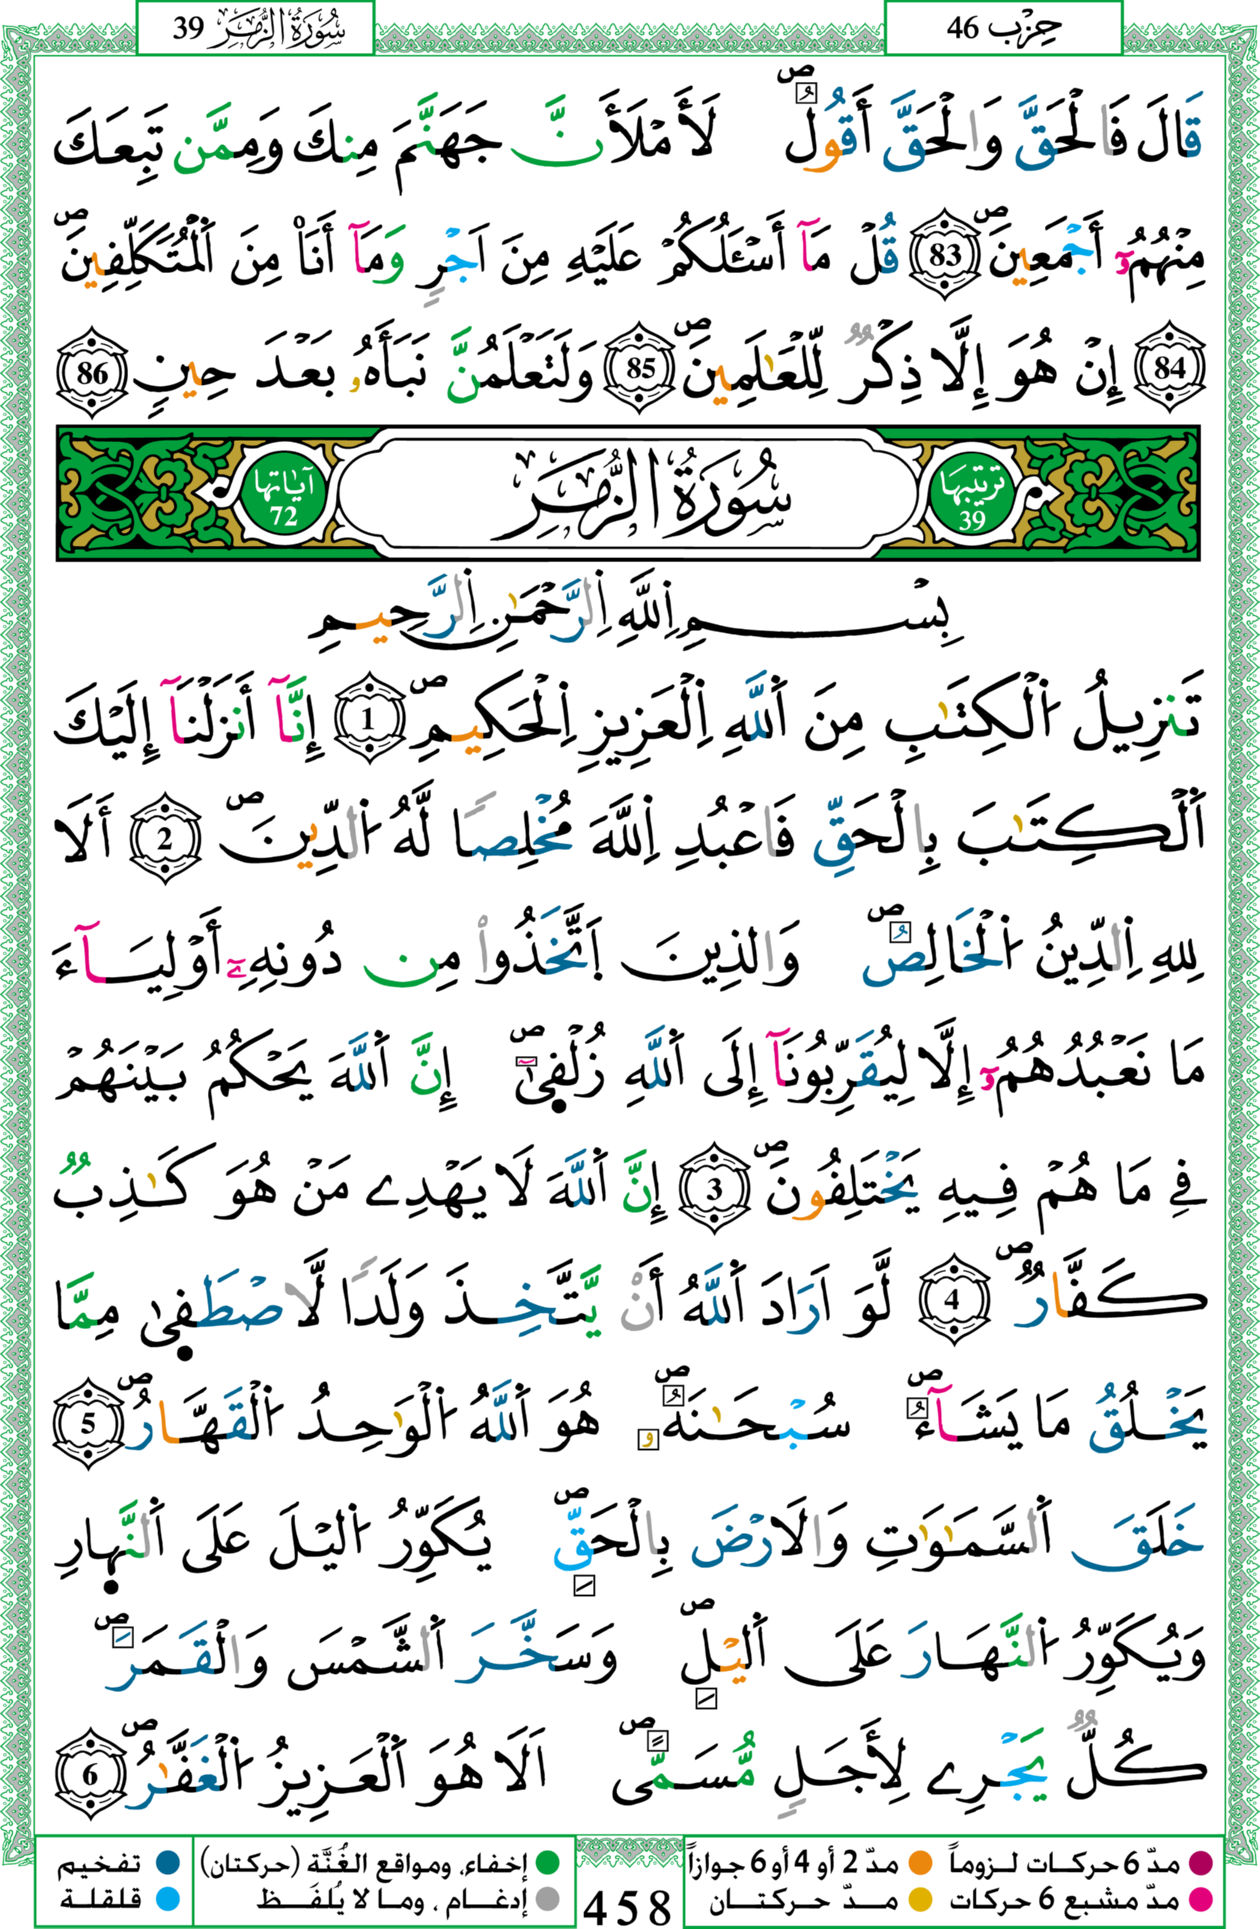 حِزْب 46
سُورَةُ الزُّمَرِ 39
قَالَ فَالْحَقَّ وَالْحَقَّ أَقُولُ ص لَأَمْلَأَنَّ جَهَنَّمَ مِنكَ وَمِمَّن تَبِعَكَ
مِنْهُمُۥٓ أَجْمَعِينَ ص 83 قُلْ مَآ أَسْـَٔلُكُمْ عَلَيْهِ مِنَ اَجْرٍ وَمَآ أَنَا۠ مِنَ اَ۬لْمُتَكَلِّفِينَ ص
84 إِنْ هُوَ إِلَّا ذِكْرٌ لِّلْعَٰلَمِينَ ص 85 وَلَتَعْلَمُنَّ نَبَأَهُۥ بَعْدَ حِينٍ 86
ترتيبها 39 سُورَةُ الزُّمَرِ آياتها 72
بِسْمِ اِ۬للَّهِ اِ۬لرَّحْمَٰنِ اِ۬لرَّحِيمِ
تَنزِيلُ اُ۬لْكِتَٰبِ مِنَ اَ۬للَّهِ اِ۬لْعَزِيزِ اِ۬لْحَكِيمِ ص 1 إِنَّآ أَنزَلْنَآ إِلَيْكَ
اَ۬لْكِتَٰبَ بِالْحَقِّ فَاعْبُدِ اِ۬للَّهَ مُخْلِصًا لَّهُ اُ۬لدِّينَ ص 2 أَلَا
لِلهِ اِ۬لدِّينُ اُ۬لْخَالِصُ ص وَالذِينَ اَ۪تَّخَذُوا۟ مِن دُونِهِۦٓ أَوْلِيَآءَ
مَا نَعْبُدُهُمُۥٓ إِلَّا لِيُقَرِّبُونَآ إِلَى اَ۬للَّهِ زُلْفٜىٰٓ ص إِنَّ اَ۬للَّهَ يَحْكُمُ بَيْنَهُمْ
فِے مَا هُمْ فِيهِ يَخْتَلِفُونَ ص 3 إِنَّ اَ۬للَّهَ لَا يَهْدِے مَنْ هُوَ كَٰذِبٌ
كَفَّارٌ ص 4 لَّوَ اَرَادَ اَ۬للَّهُ أَنْ يَّتَّخِذَ وَلَدًا لَّاصْطَفٜىٰ مِمَّا
يَخْلُقُ مَا يَشَآءُ ص سُبْحَٰنَهُۥ ص هُوَ اَ۬للَّهُ اُ۬لْوَٰحِدُ اُ۬لْقَهَّارُ ص 5
خَلَقَ اَ۬لسَّمَٰوَٰتِ وَالَارْضَ بِالْحَقِّ ص يُكَوِّرُ اُ۬ليْلَ عَلَى اَ۬لنَّهٜارِ
وَيُكَوِّرُ اُ۬لنَّهَارَ عَلَى اَ۬ليْلِ ص وَسَخَّرَ اَ۬لشَّمْسَ وَالْقَمَرَ ص
كُلٌّ يَجْرِے لِأَجَلٍ مُّسَمًّى ص اَلَا هُوَ اَ۬لْعَزِيزُ اُ۬لْغَفَّٰرُ ص 6
مدّ 6 حركات لـزوماً مدّ 2 أو 4 أو 6 جوازاً إخفاء، ومواقع الغُنَّة (حركتان) تفخيم
مدّ مشبع 6 حركات مـدّ حركتـان 458 إدغـام ، ومـا لا يُلفَـظ قلقلة